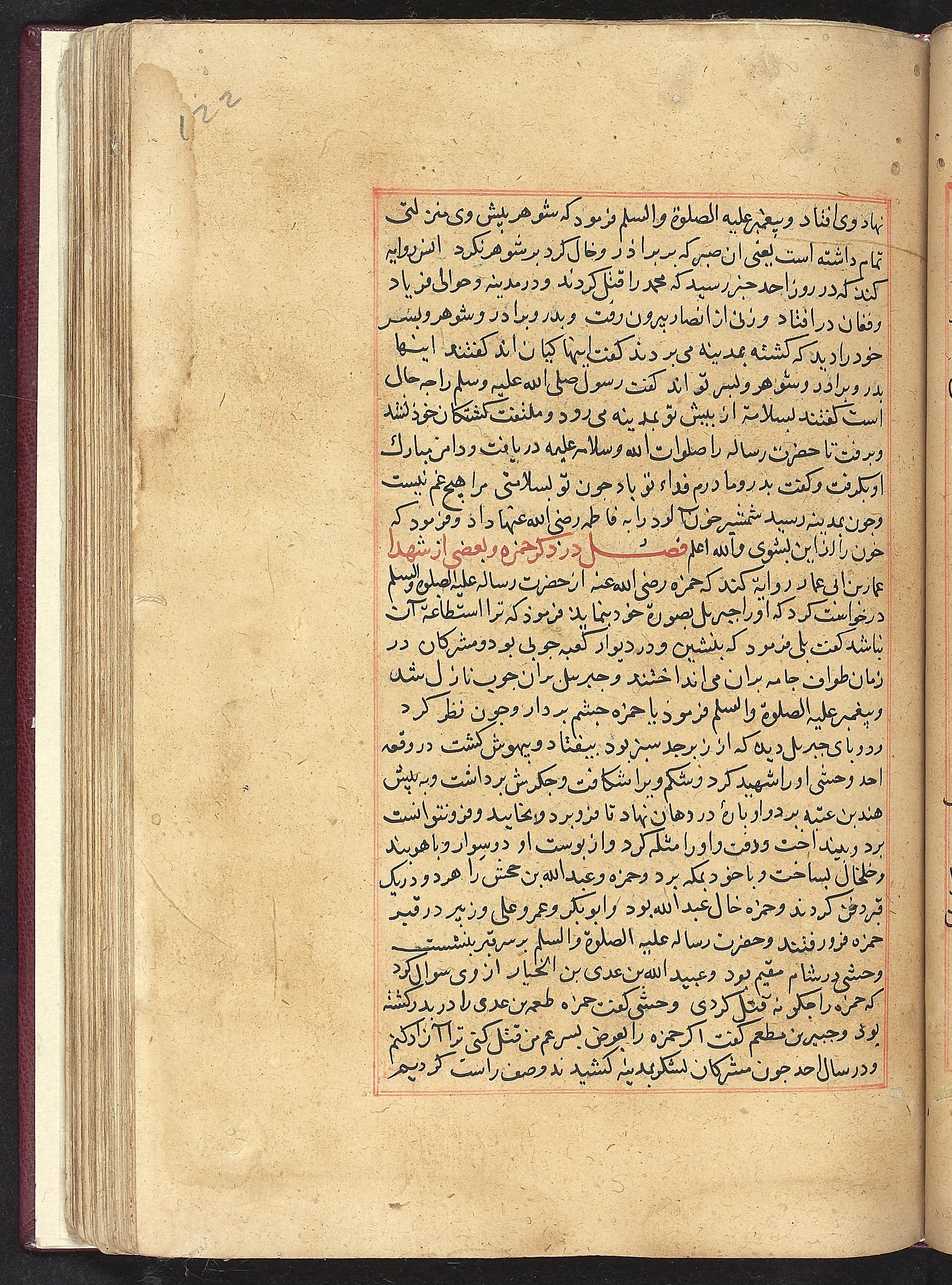 122
نهاد وی افتاد و پیغمبر علیه الصلوة والسلم فرمود که شوهر پیش وی منزلتی
تمام داشته است یعنی ان صبر که بر برادر و خال کرد بر شوهر نکرد انس روایة
کند که در روز احد خبر رسید که محمد را قتل کردند و در مدینه و حوالی فریاد
وفغان در افتاد و زنی از انصار بیرون رفت و پدر و برادر و شوهر و پسر
خود را دید که کشته بمدینه می بردند کفت اینها کیان اند کفتند اینها
پدر و برادر و شوهر و پسر تو اند کفت رسول صلی الله علیه وسلم را چه حال
است کفتند بسلامة از پیش تو بمدینه می رود و ملتفت کشتکان خود نشد
و برفت تا حضرت رساله را صلوات الله وسلامه علیه دریافت و دامن مبارک
او بکرفت و کفت پدر و مادرم فداء تو باد چون تو بسلامتی مرا هیچ غم نیست
وچون بمدینه رسید شمشیر خون آلود را به فاطمه رضی الله عنها داد و فرمود که
خون را از این بشوی والله اعلم فصل در ذکر حمزه و بعضی از شهدا
عمار بن ابی عمار روایة کند که حمزه رضی الله عنه از حضرت رساله علیه الصلوة والسلم
درخواست کرد که او را جبریل بصورة خود بنماید فرمود که ترا استطاعة آن
نباشد کفت بلی فرمود که بنشین و در دیوار کعبه چوبی بود و مشرکان در
زمان طواف جامه بران می انداختند و جبریل بران چوب نازل شد
و پیغمبر علیه الصلوة والسلم فرمود یا حمزه چشم بردار وچون نظر کرد
و دو پای جبریل دید که از زبرجد سبز بود بیفتاد و بیهوش کشت در وقعه
احد وحشی او را شهید کرد و شکم ویرا بشکافت و جکرش برداشت و به پیش
هند بن عتبه برد و او پارۀ در دهان نهاد تا فرو برد و بخایید و فرو نتوانست
برد و بینداخت و رفت و او را مثله کرد و از پوست او دو سوار و باهوبند
و خلخال بساخت و با خود بمکه برد و حمزه و عبد الله بن جحش را هر دو در یک
قبر دفن کردند و حمزه خال عبد الله بود و ابو بکر و عمر و علی و زبیر در قبر
حمزه فرو رفتند و حضرت رساله علیه الصلوة والسلم بر سر قبر بنشست
وحشی در شام مقیم بود و عبید الله بن عدی بن الخیار از وی سوال کرد
که حمزه را چکونه قتل کردی وحشی کفت حمزه طعمه بن عدی را در بدر کشته
بود و جبیر بن مطعم کفت اکر حمزه را بعوض پسر عم من قتل کنی ترا آزاد کنم
و در سال احد چون مشرکان لشکر بمدینه کشیدند و صف راست کردیم